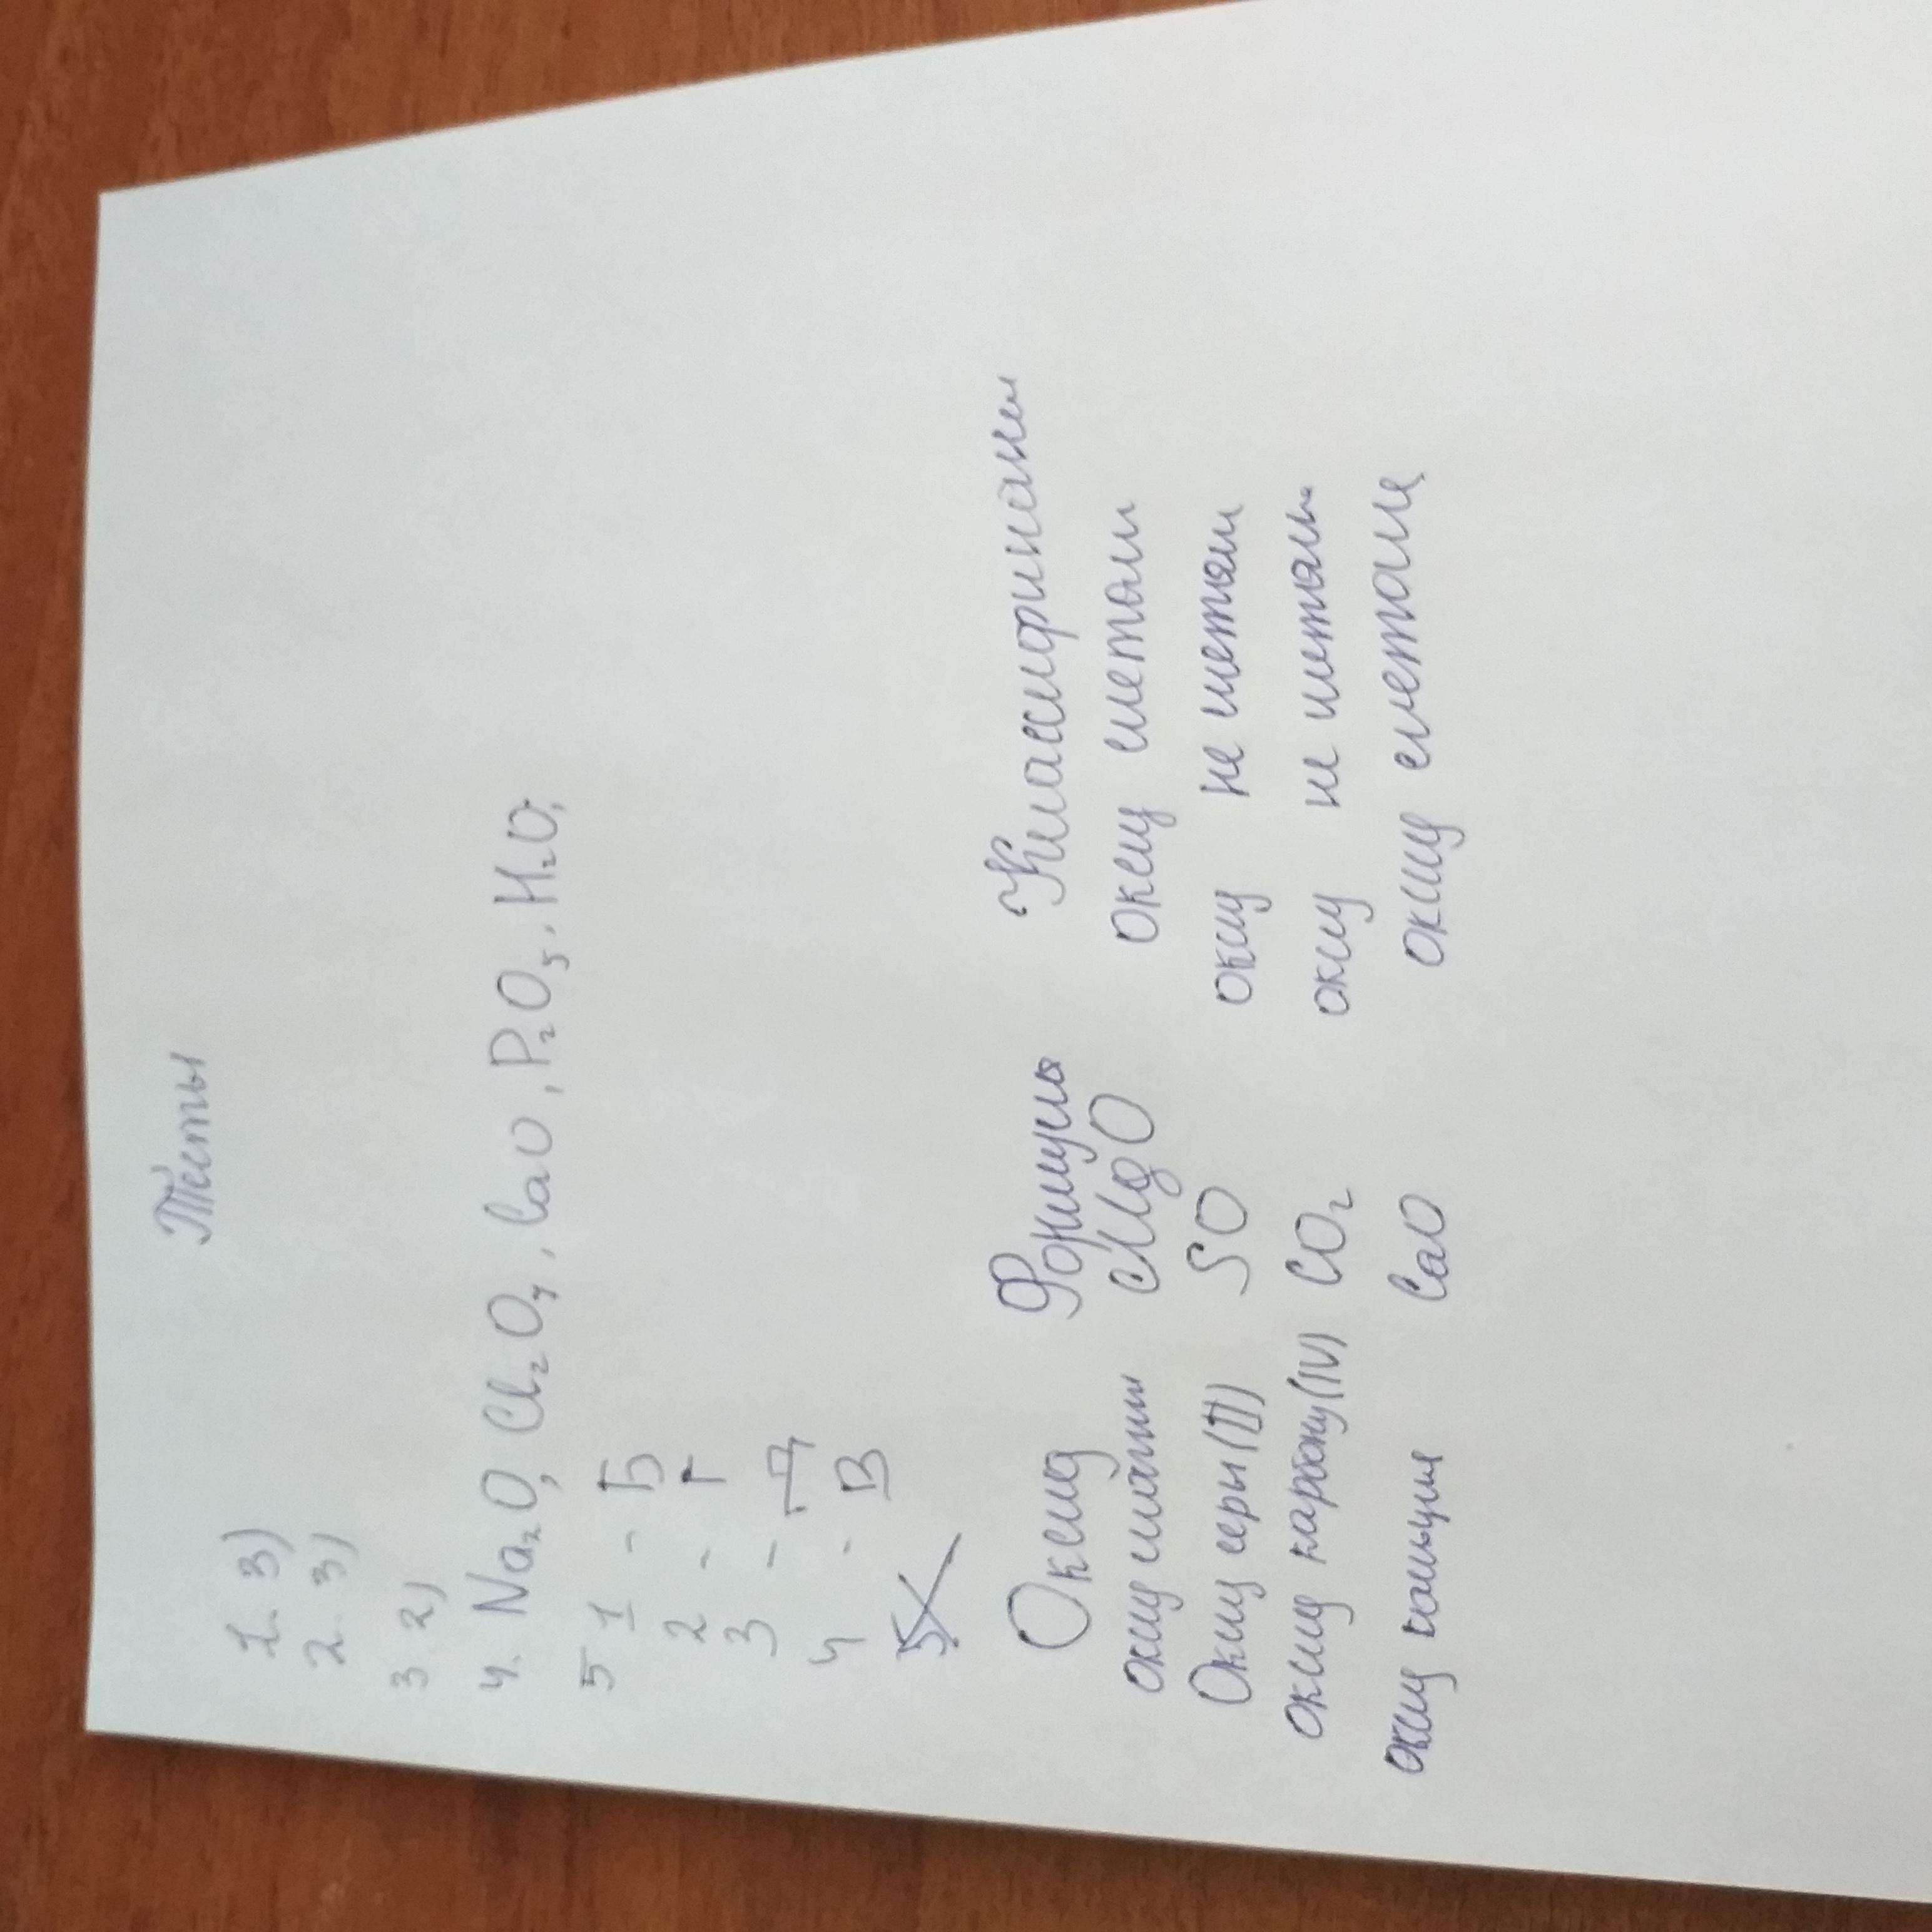 Тесты
1. 3)
2. 3)
3. 2)
4. Na₂O, Cl₂O₇, CaO, P₂O₅, H₂O,
5 1 - Б
2 - Г
3 - Д
4 - В
5
Оксид Формула Класификаци
оксид магни MgO оксид метал
Оксид серы (II) SO оксид не метал
оксид карбону (IV) CO₂ оксид не метал
оксид кальция CaO оксид метал